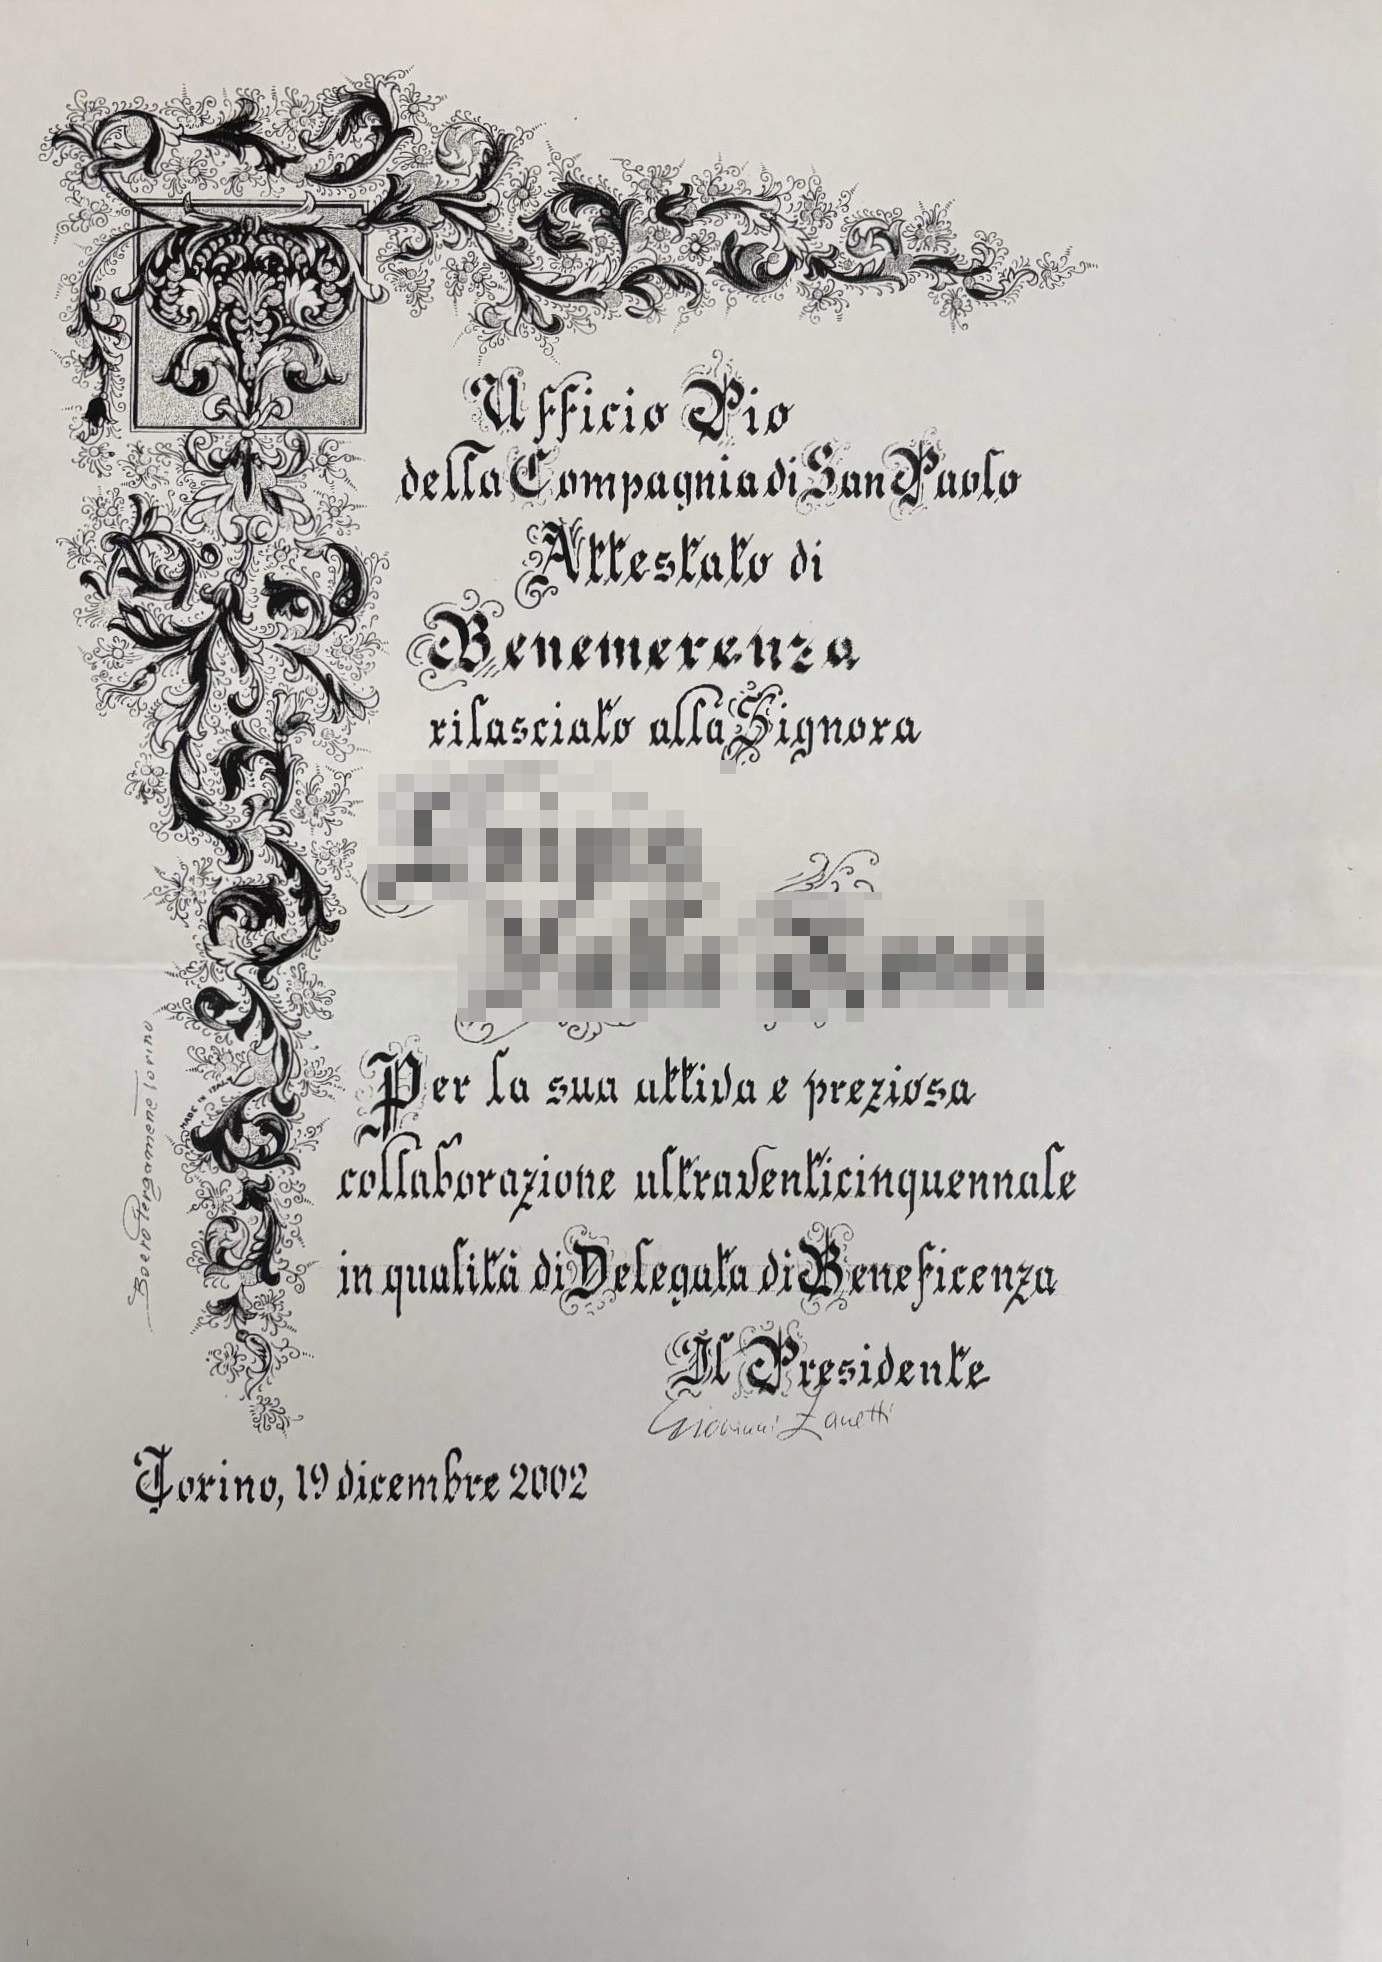 Ufficio Pio
della Compagnia di San Paolo
Attestato di
Benemerenza
rilasciato alla Signora
Per la sua attiva e preziosa
collaborazione ultraventicinquennale
in qualità di Delegata di Beneficenza
Il Presidente
Giovanni Zanetti
Torino, 19 dicembre 2002
MADE IN ITALY
Torino